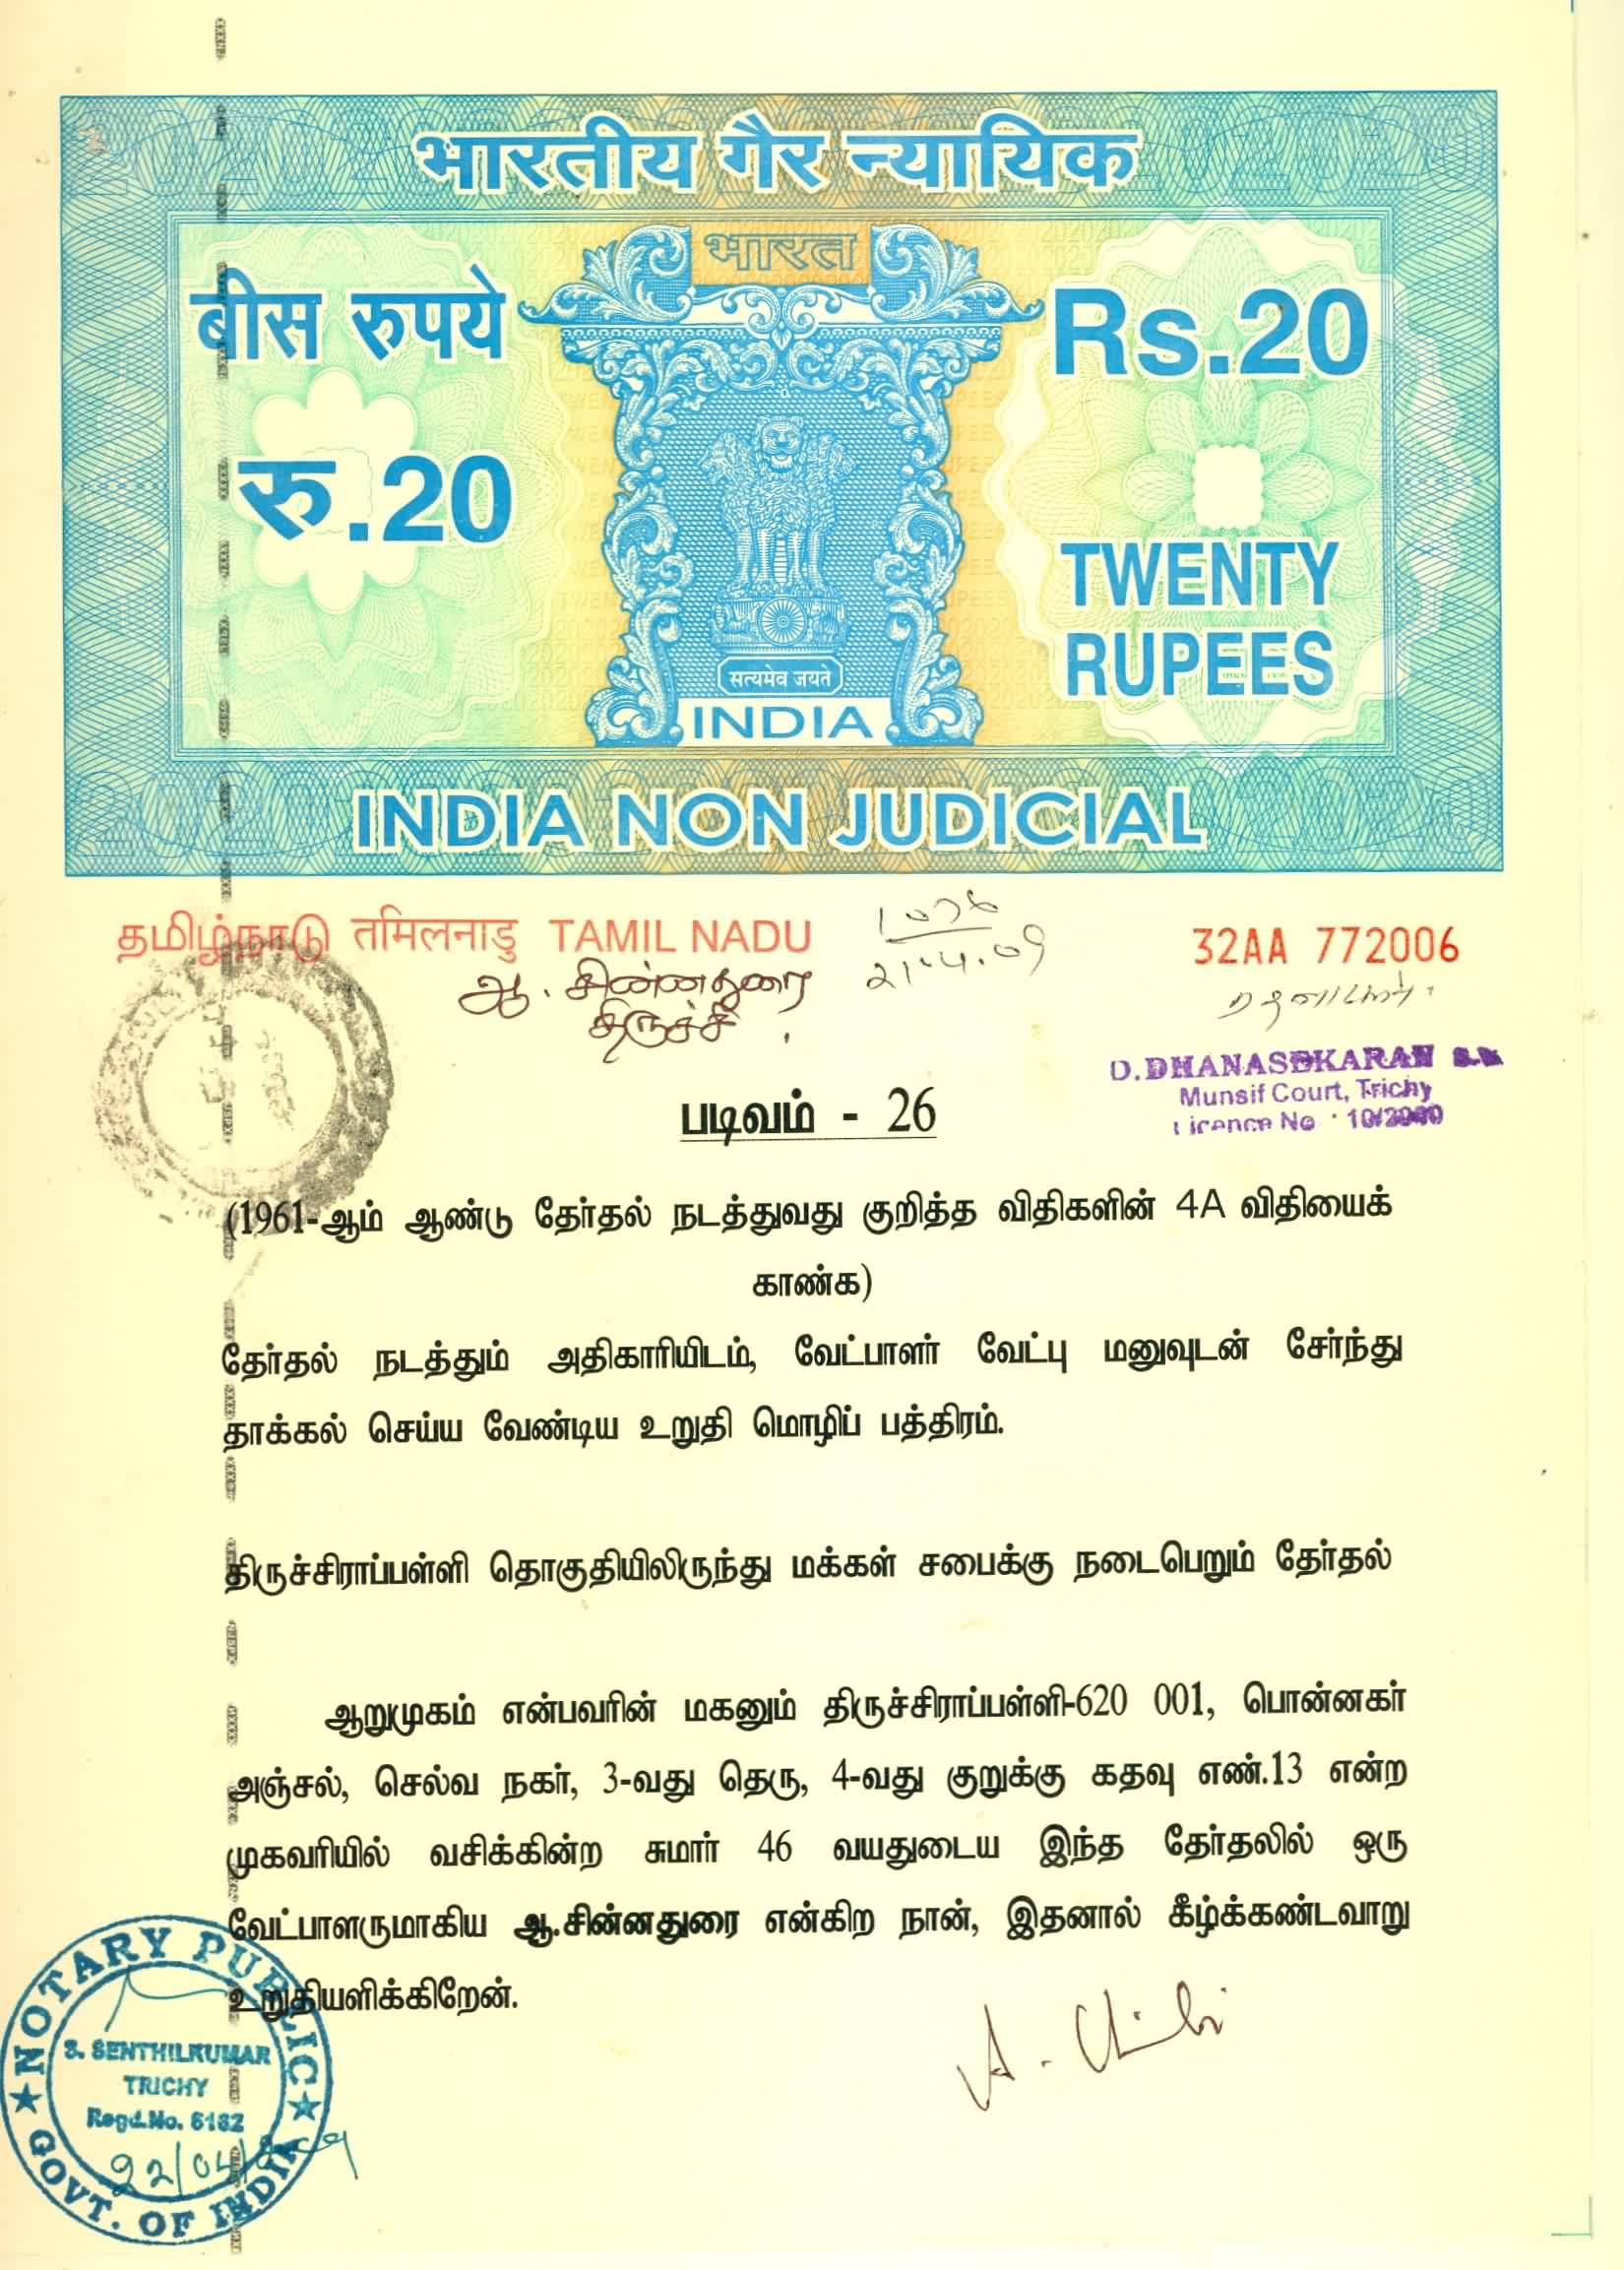 भारतीय गैर न्यायिक
भारत
बीस रुपये
Rs.20
रु.20
TWENTY
RUPEES
सत्यमेव जयते
INDIA
INDIA NON JUDICIAL
தமிழ்நாடு तमिलनाडु TAMIL NADU
32AA 772006
21.4.09
ஆ. சின்னதுரை
திருச்சி
D.DHANASEKARAN
Munsif Court, Trichy
Licence No : 10/2000
படிவம் - 26
(1961-ஆம் ஆண்டு தேர்தல் நடத்துவது குறித்த விதிகளின் 4A விதியைக்
காண்க)
தேர்தல் நடத்தும் அதிகாரியிடம், வேட்பாளர் வேட்பு மனுவுடன் சேர்ந்து
தாக்கல் செய்ய வேண்டிய உறுதி மொழிப் பத்திரம்.
திருச்சிராப்பள்ளி தொகுதியிலிருந்து மக்கள் சபைக்கு நடைபெறும் தேர்தல்
ஆறுமுகம் என்பவரின் மகனும் திருச்சிராப்பள்ளி-620 001, பொன்னகர்
அஞ்சல், செல்வ நகர், 3-வது தெரு, 4-வது குறுக்கு கதவு எண்.13 என்ற
முகவரியில் வசிக்கின்ற சுமார் 46 வயதுடைய இந்த தேர்தலில் ஒரு
வேட்பாளருமாகிய ஆ.சின்னதுரை என்கிற நான், இதனால் கீழ்க்கண்டவாறு
உறுதியளிக்கிறேன்.
NOTARY PUBLIC
S. SENTHILKUMAR
TRICHY
Regd.No. 6182
22/04/2009
GOVT. OF INDIA